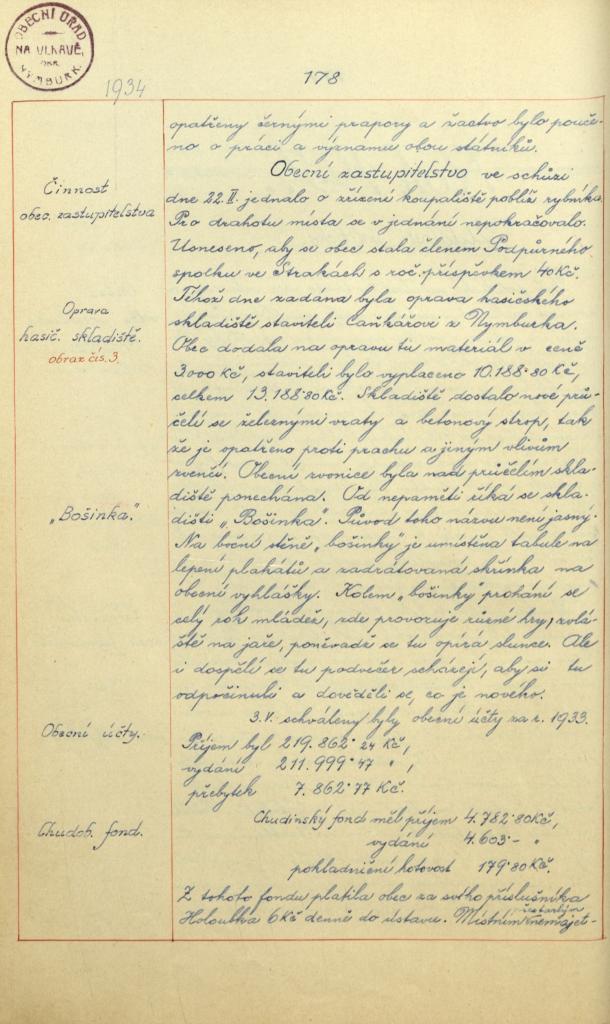 OBECNÍ ÚŘAD
NA VLKAVĚ,
OKR.
NYMBURK.
1934
178
opatřeny černými prapory a žactvo bylo pouče-
no o práci a významu obou státníků.
Obecní zastupitelstvo ve schůzi
Činnost
obec. zastupitelstva
dne 22.II. jednalo o zřízení koupaliště poblíž rybníka.
Pro drahotu místa se v jednání nepokračovalo.
Usneseno, aby se obec stala členem Podpůrného
spolku ve Strakách s roč. příspěvkem 40 Kč.
Oprava
hasič. skladiště.
obraz čís. 3.
Téhož dne zadána byla oprava hasičského
skladiště staviteli Caňkářovi z Nymburka.
Obec dodala na opravu tu materiál v ceně
3000 Kč, staviteli bylo vyplaceno 10.188·80 Kč,
celkem 13.188·80 Kč. Skladiště dostalo nové prů-
čelí se železnými vraty a betonový strop, tak
že je opatřeno proti prachu a jiným vlivům
zvenčí. Obecní zvonice byla nad průčelím skla-
diště ponechána. Od nepaměti říká se skla-
„Bošinka."
dišti „Bošinka". Původ toho názvu není jasný.
Na boční stěně „bošinky" je umístěna tabule na
lepení plakátů a zadrátovaná skřínka na
obecní vyhlášky. Kolem „bošinky" prohání se
celý rok mládež, zde provozuje různé hry, zvlá-
ště na jaře, poněvadž se tu opírá slunce. Ale
i dospělí se tu podvečer scházejí, aby si tu
odpočinuli a dověděli se, co je nového.
Obecní účty.
3.V. schváleny byly obecní účty za r. 1933.
Příjem byl 219.862·24 Kč,
vydání 211.999·47 " ,
přebytek 7.862·77 Kč.
Chudob. fond.
Chudinský fond měl příjem 4.782·80 Kč,
vydání 4.603·– "
pokladniční hotovost 179·80 Kč.
Z tohoto fondu platila obec za svého příslušníka
Holoubka 6 Kč denně do ústavu. Místním nemajet-